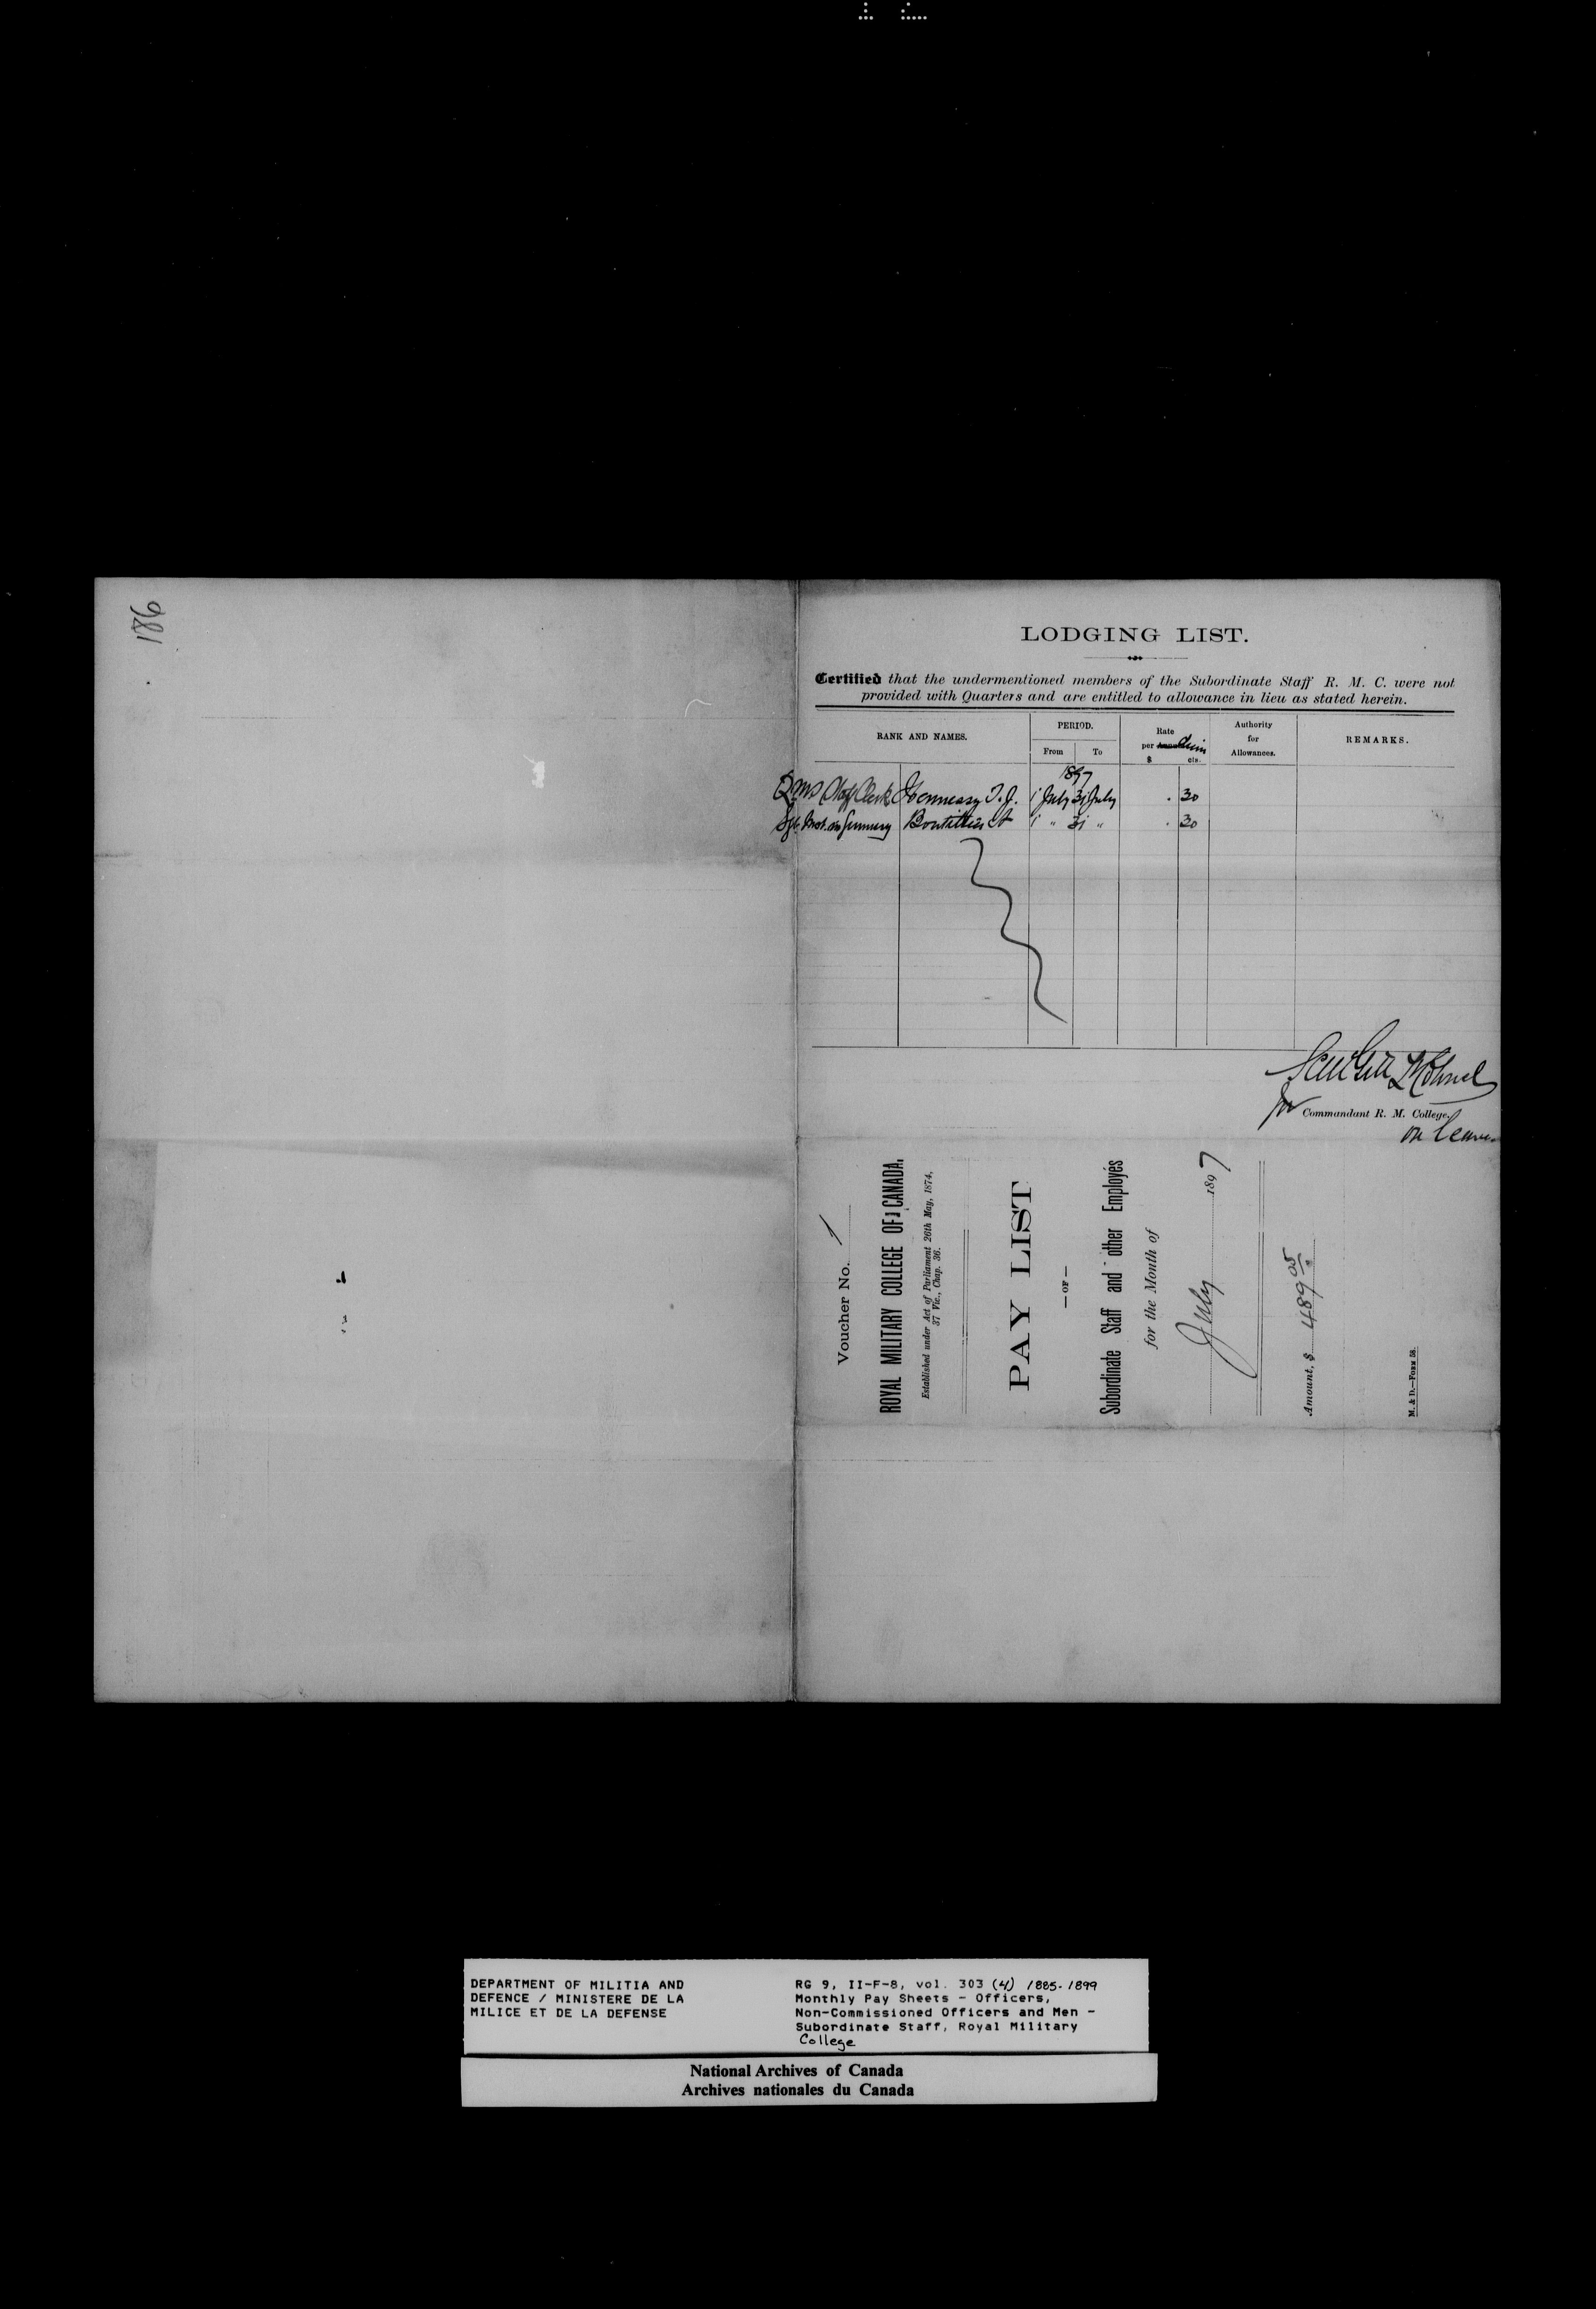 186
LODGING LIST.
Certified that the undermentioned members of the Subordinate Staff R. M. C. were not
provided with Quarters and are entitled to allowance in lieu as stated herein.
RANK AND NAMES.
PERIOD.
From
To
Rate
per diem
$ cts.
Authority
for
Allowances.
REMARKS.
1897
QMS Staff Clerk Hennessy T. J. 1 July 31 July . 30
Sgt. Inst. in Gunnery 1 " 31 " . 30
for Commandant R. M. College.
on leave
Voucher No. 1
ROYAL MILITARY COLLEGE OF CANADA,
Established under Act of Parliament 26th May, 1874,
37 Vic., Chap. 36.
PAY LIST
— OF —
Subordinate Staff and other Employés
for the Month of
July 1897
Amount, $ 489 05
M. & D.—FORM 58.
DEPARTMENT OF MILITIA AND
DEFENCE / MINISTERE DE LA
MILICE ET DE LA DEFENSE
RG 9, II-F-8, vol. 303 (4) 1885-1899
Monthly Pay Sheets - Officers,
Non-Commissioned Officers and Men -
Subordinate Staff, Royal Military
College
National Archives of Canada
Archives nationales du Canada